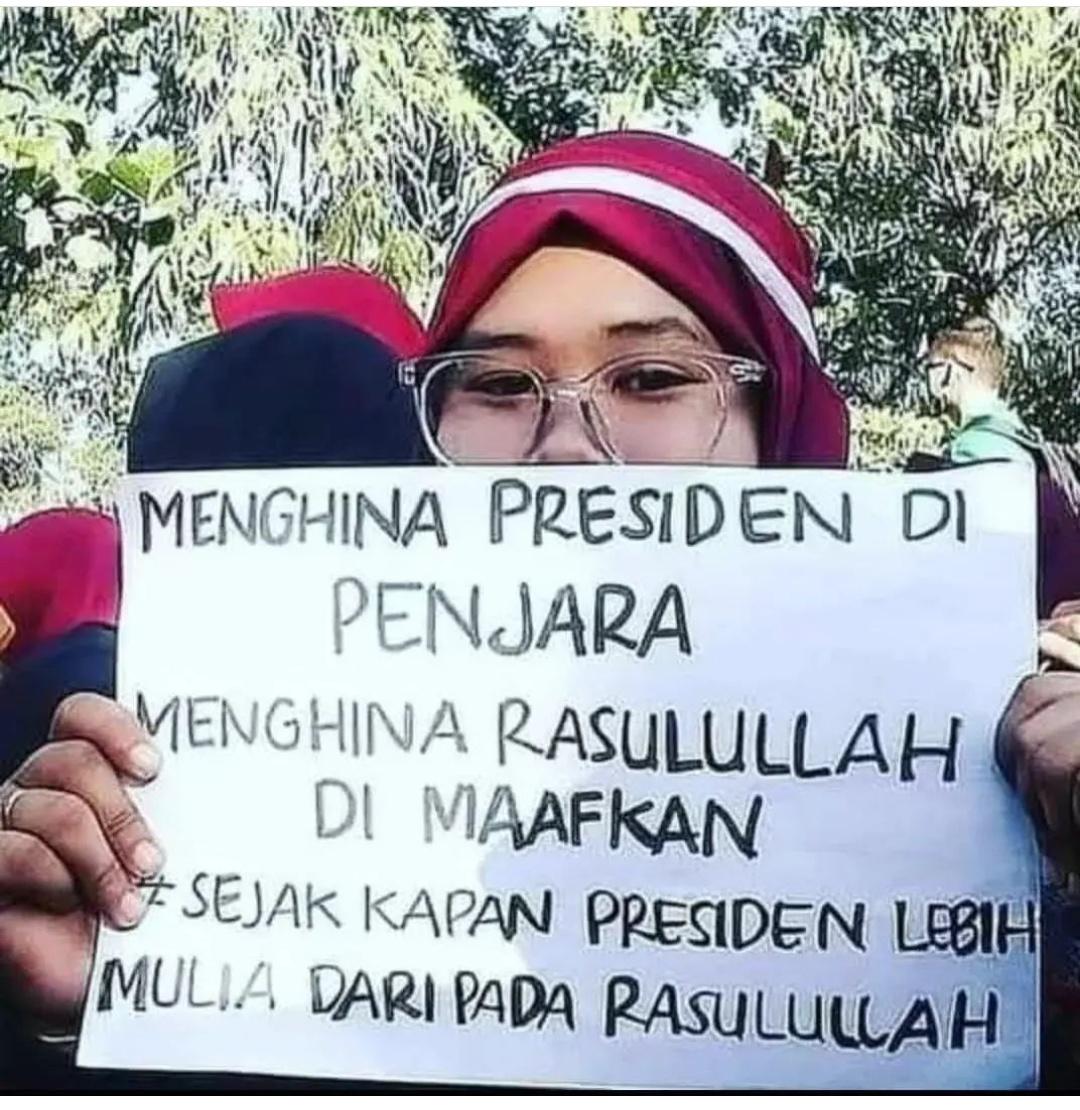 MENGHINA PRESIDEN DI
PENJARA
MENGHINA RASULULLAH
DI MAAFKAN
# SEJAK KAPAN PRESIDEN LEBIH
MULIA DARI PADA RASULULLAH